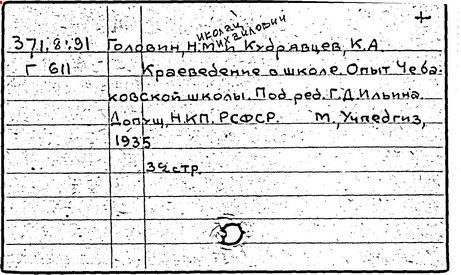 иколай
михайлович
371.8:91 Головин, Н.М. и Кудрявцев, К.А.
Г 611 Краеведение в школе. Опыт Чеба-
ковской школы. Под ред. Г.Д. Ильина.
Допущ. НКП. РСФСР. М., Учпедгиз,
1935
стр.